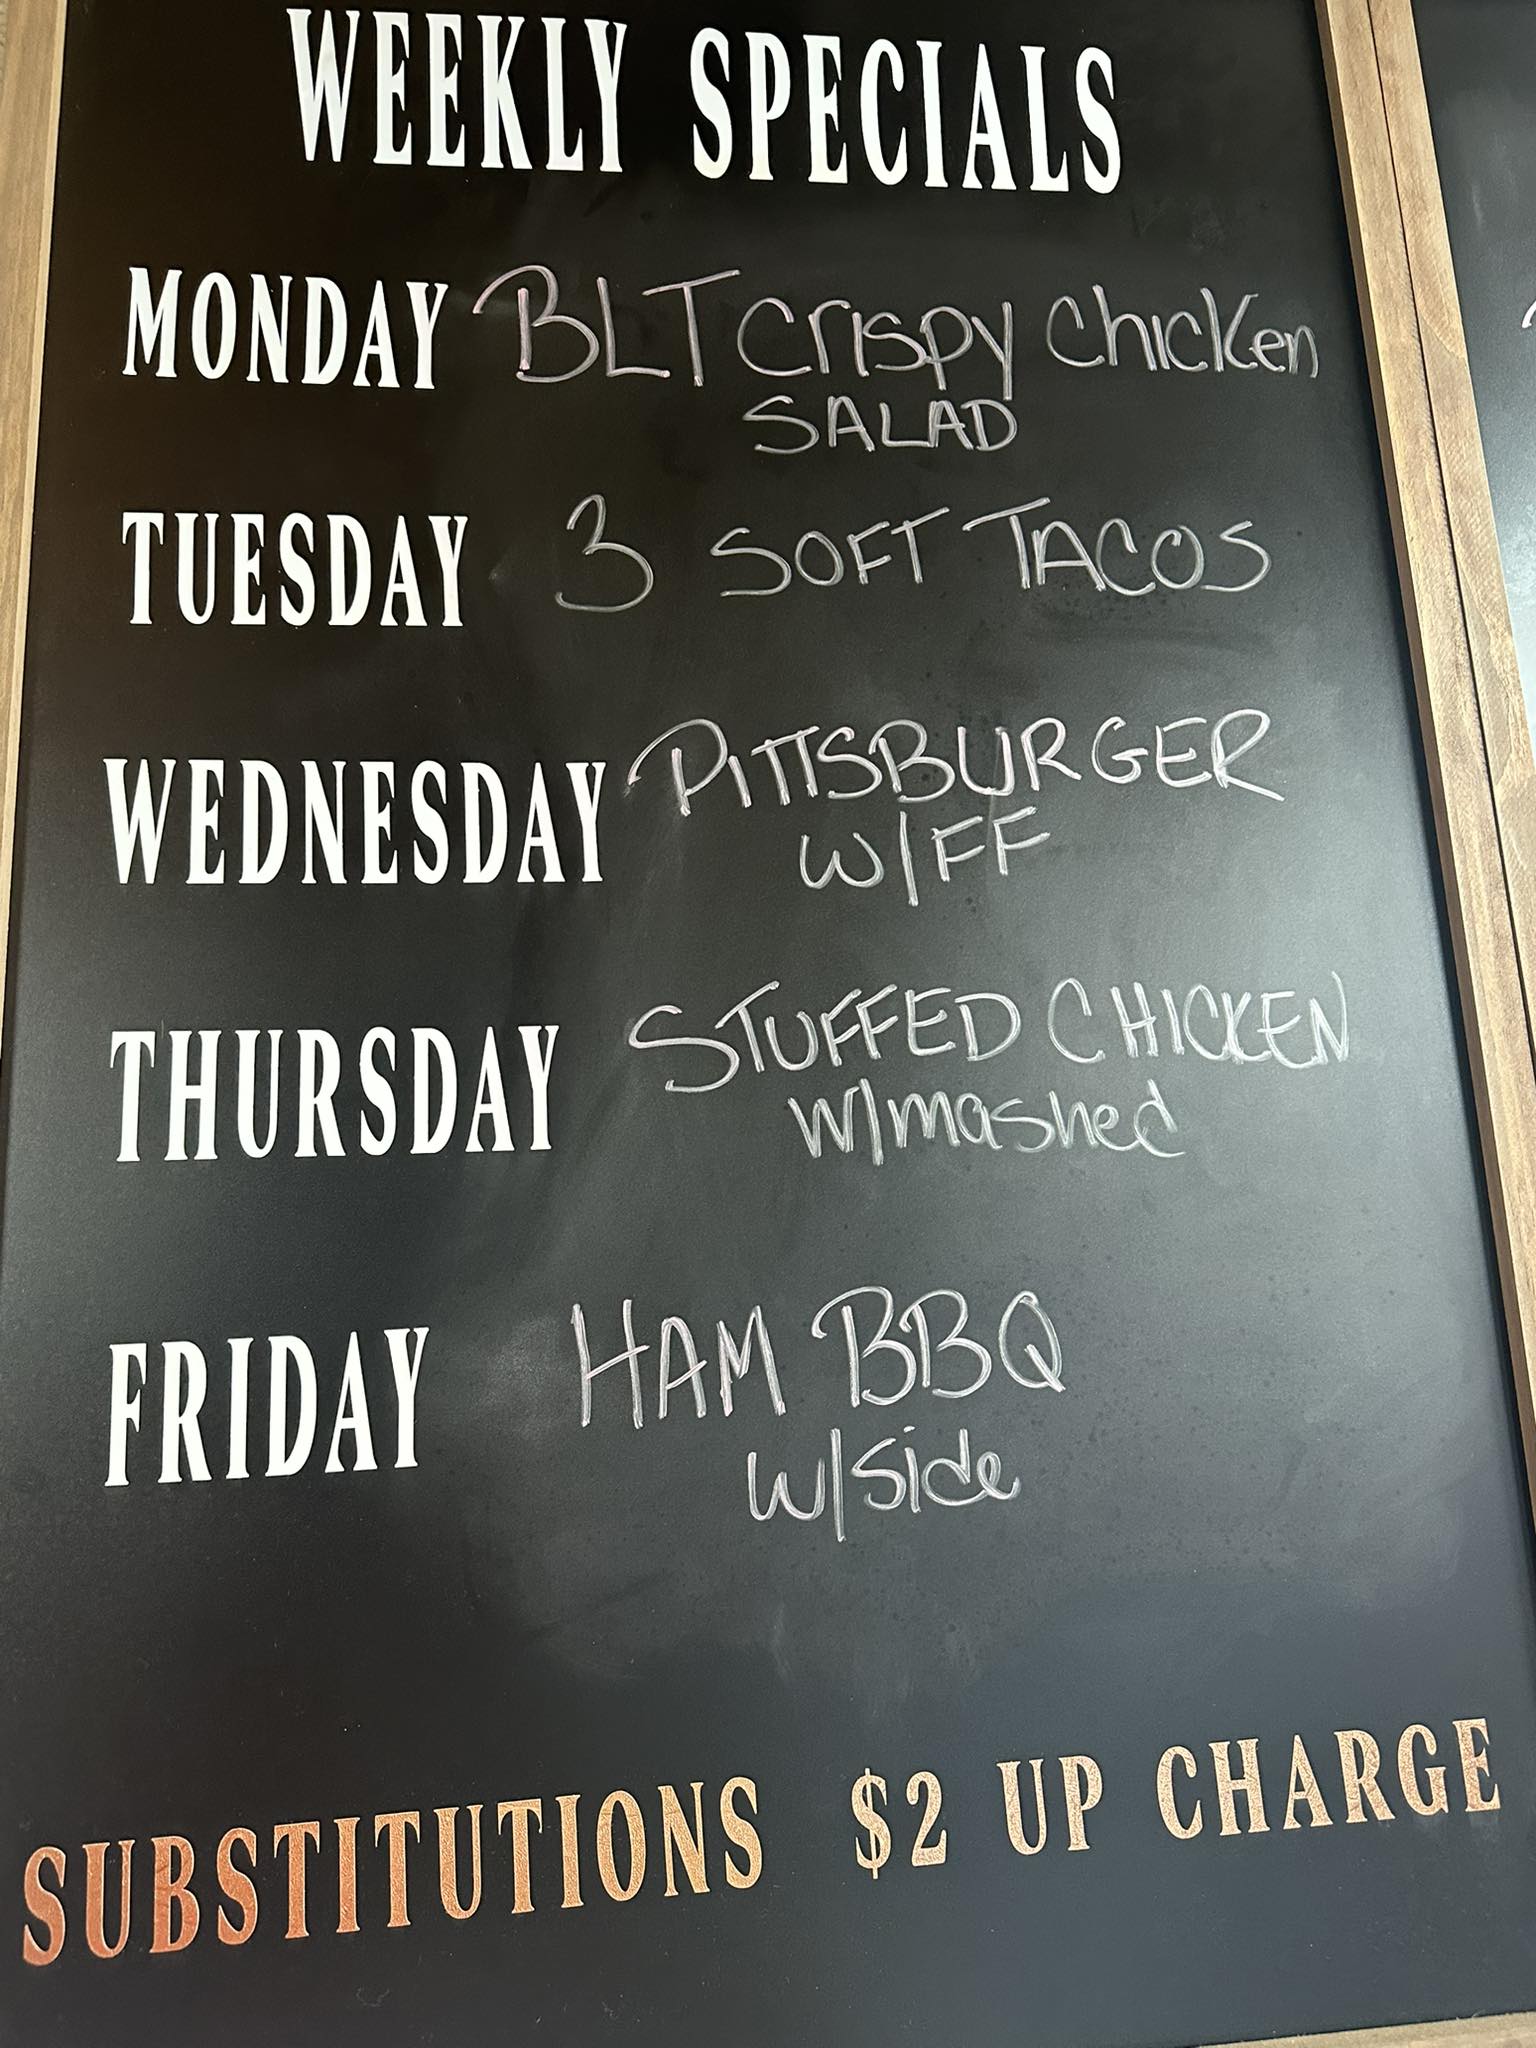 WEEKLY SPECIALS
MONDAY BLT Crispy Chicken
SALAD
TUESDAY 3 SOFT TACOS
WEDNESDAY PITTSBURGER
W/FF
THURSDAY STUFFED CHICKEN
w/mashed
FRIDAY HAM BBQ
w/side
SUBSTITUTIONS $2 UP CHARGE